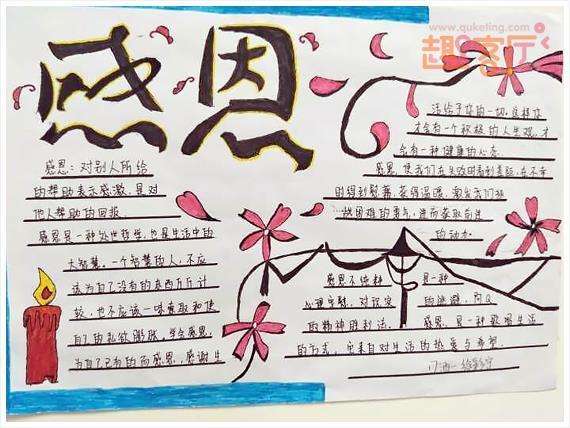 www.quketing.com
趣客厅
感恩
感恩：对别人所给
的帮助表示感激，是对
他人帮助的回报
感恩是一种处世哲学，也是生活中的
大智慧。一个智慧的人，不应
该为自己没有的东西斤斤计
较，也不应该一味索取和使
自己的私欲膨胀。学会感恩，
为自己已有的而感恩，感谢生
活给予你的一切。这样你
才会有一个积极的人生观，才
会有一种健康的心态
感恩，使我们在失败时看到差距，在不幸
时得到慰藉，获得温暖，激发我们挑
战困难的勇气，进而获取前进
的动力。
感恩不纯粹是一种
心理安慰，对现实的逃避，阿Q
的精神胜利法。感恩，是一种歌唱生活
的方式，它来自对生活的热爱与希望。